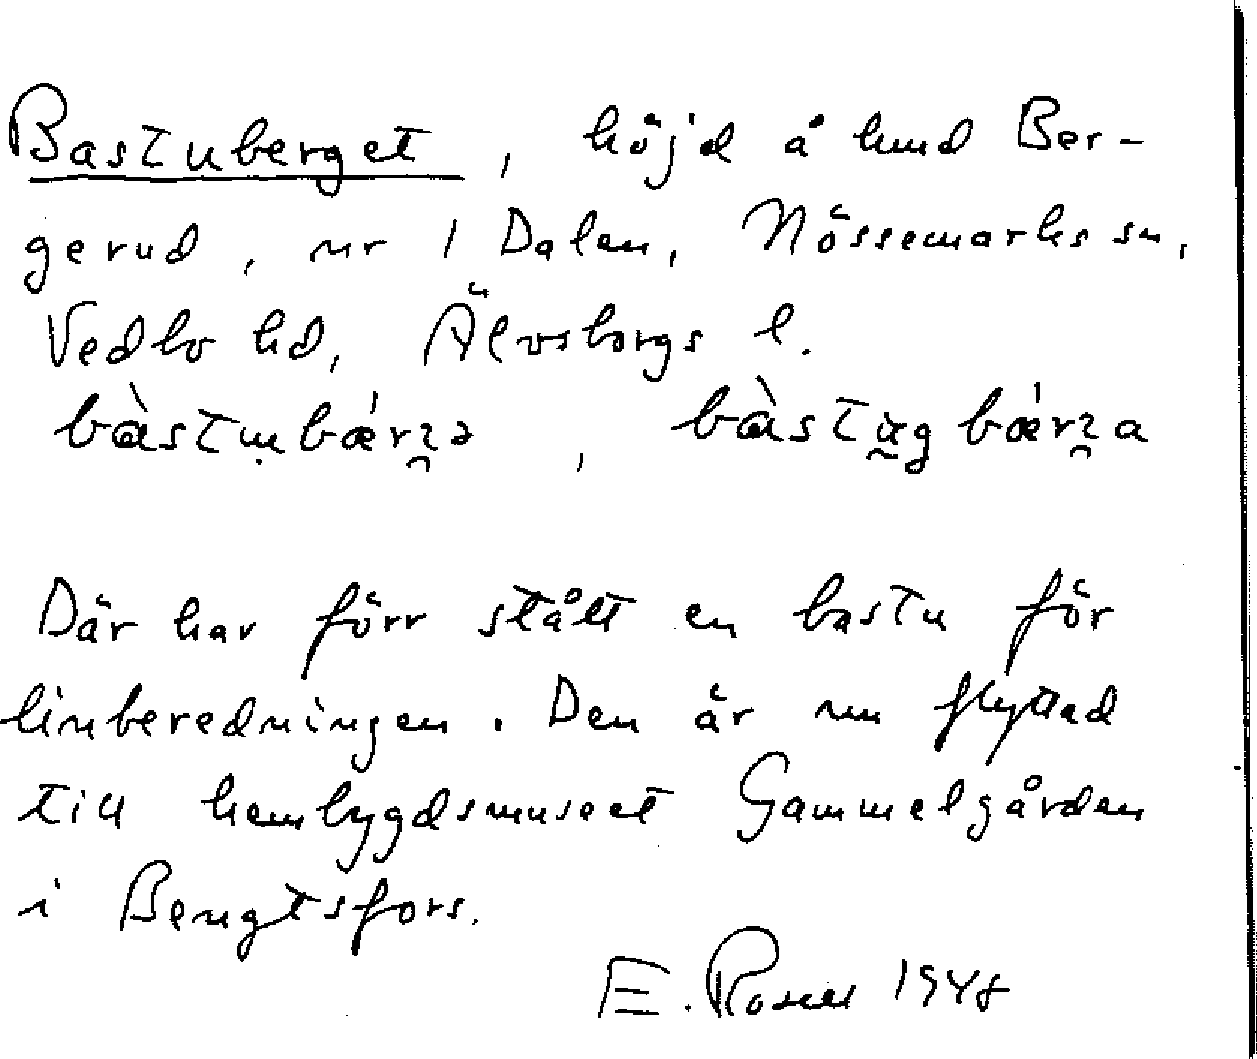 Bastuberget, höjd å hmd Ber-
gerud, nr 1 Dalen, Nössemarks sn,
Vedbo hd, Älvsborgs l.
bàstu̩bǽrɀ̯ə, bàstu̯gbǽrɀ̯a
Där har förr stått en bastu för
linberedningen. Den är nu flyttad
till hembygdsmuseet Gammelgården
i Bengtsfors.
E. Rosell 1948